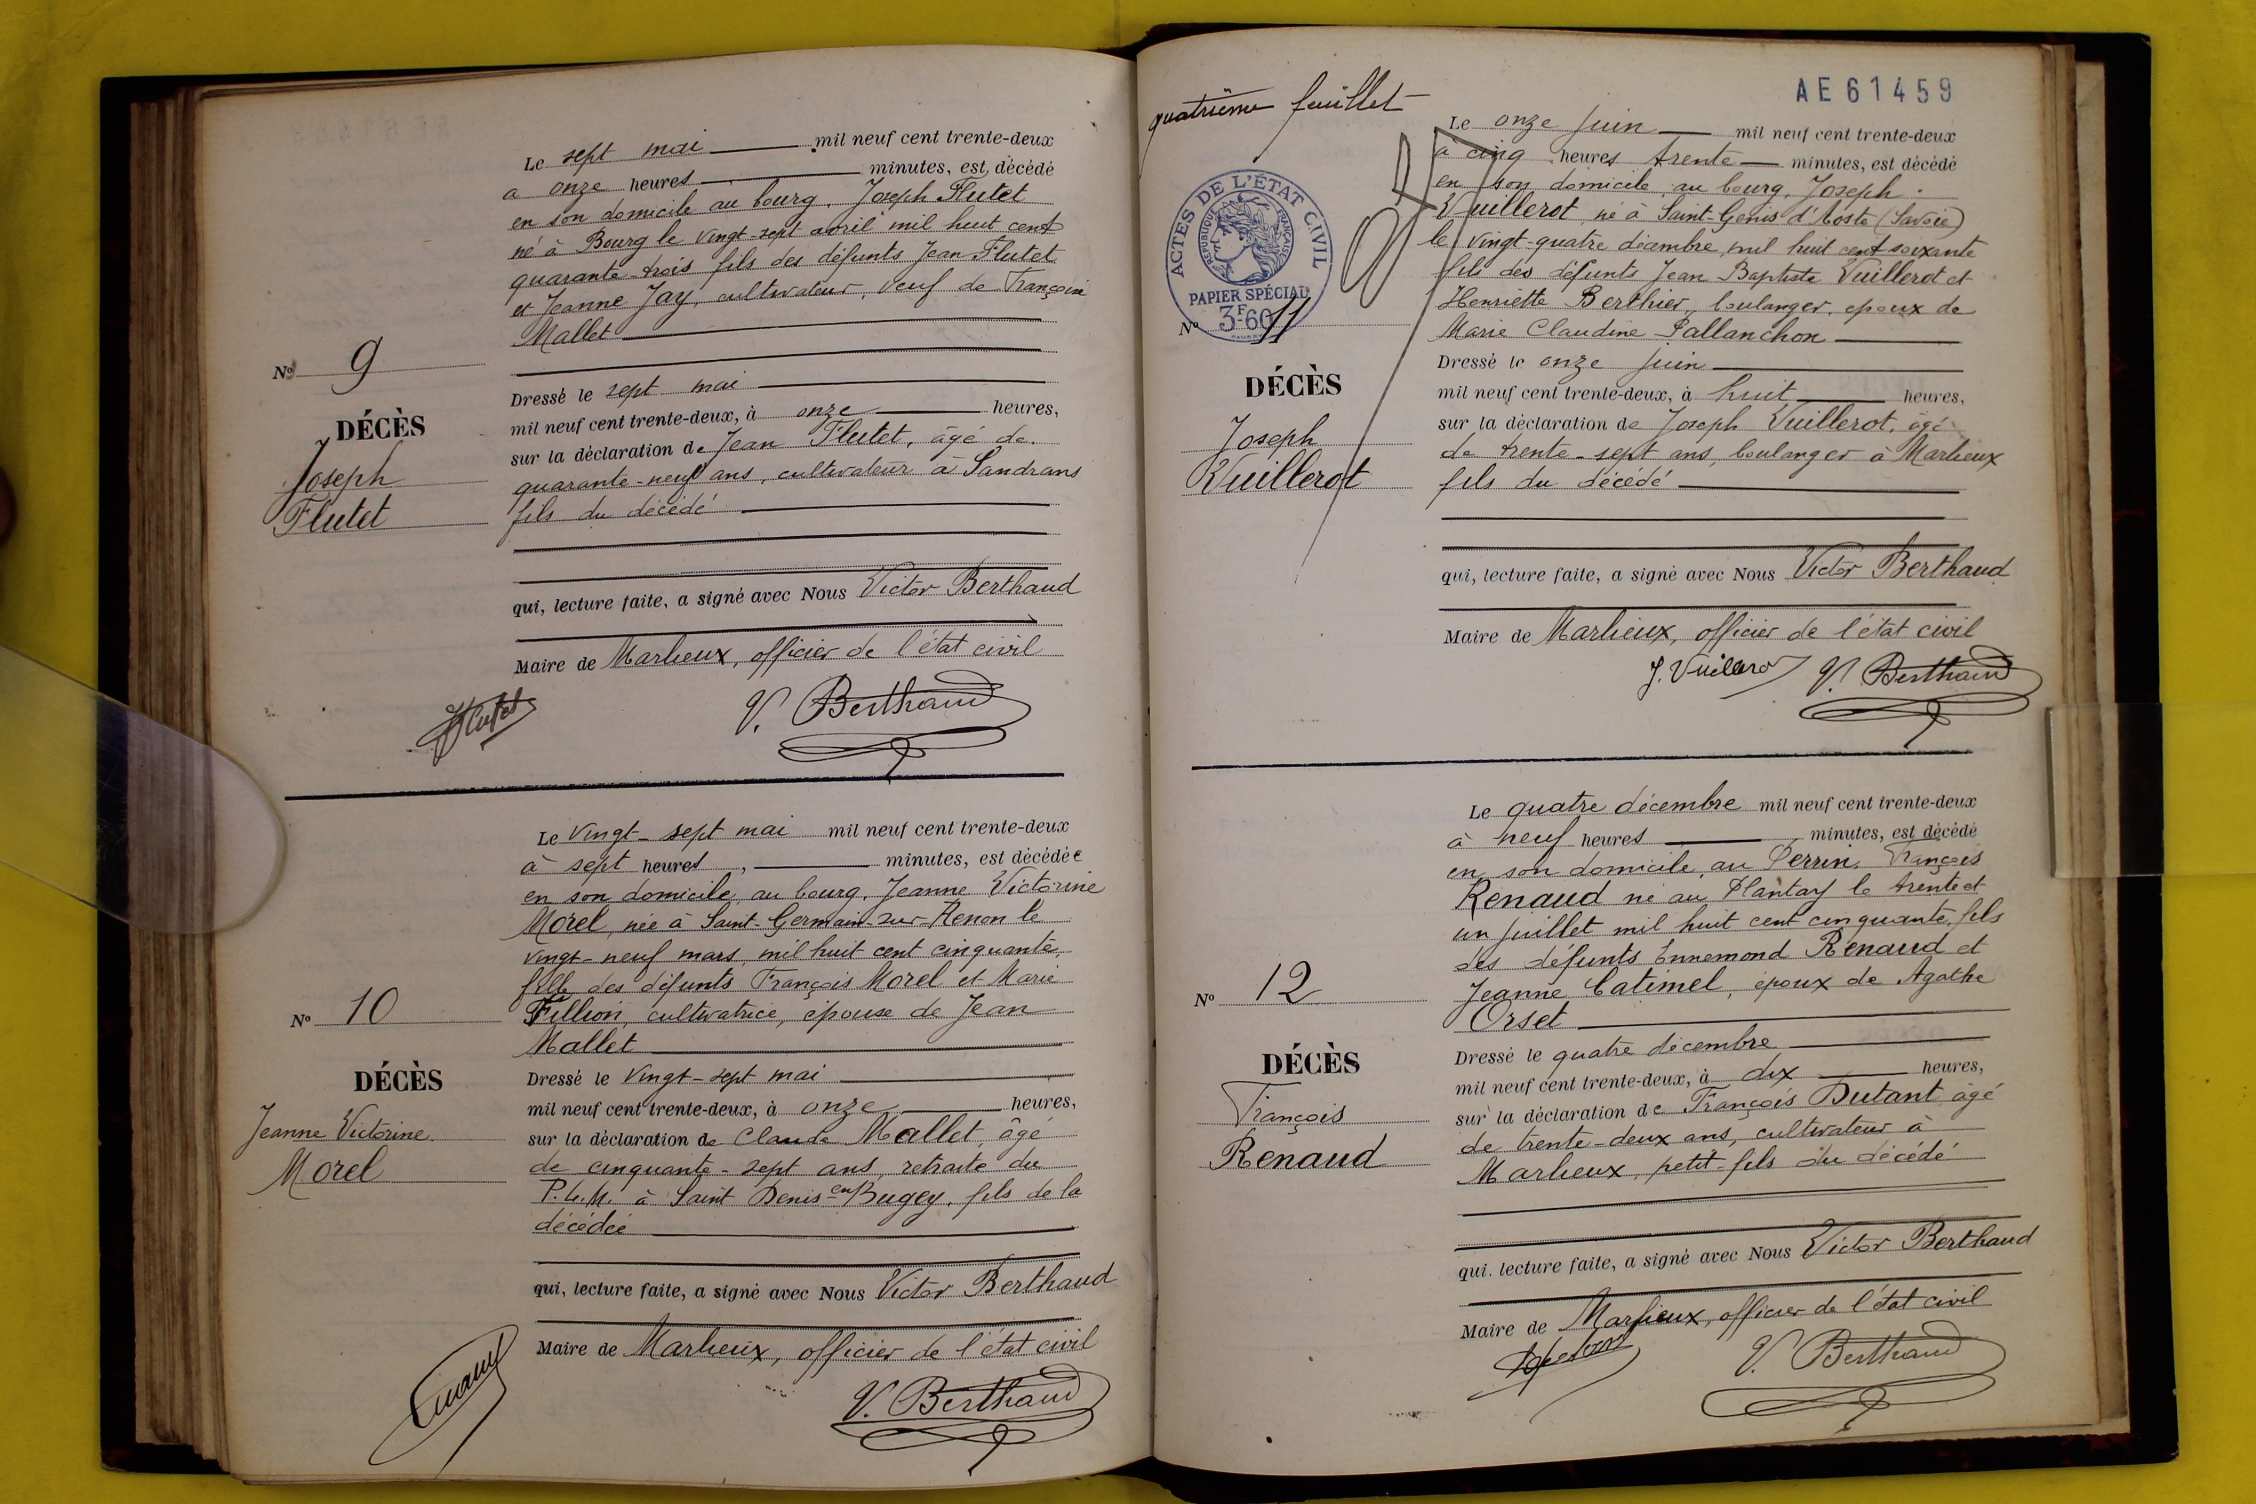 Le sept mai mil neuf cent trente-deux
a onze heures minutes, est décédé
en son domicile au bourg, Joseph Flutet
né à Bourg le vingt-sept avril mil huit cent
quarante-trois fils des défunts Jean Flutet
et Jeanne Jay, cultivateur, veuf de Françoise
Mallet
Nº 9
DÉCÈS
Joseph
Flutet
Dressé le sept mai
mil neuf cent trente-deux, à onze heures,
sur la déclaration de Jean Flutet, âgé de
quarante-neuf ans, cultivateur à Sandrans
fils du décédé
qui, lecture faite, a signé avec Nous Victor Berthaud
Maire de Marlieux, officier de l'état civil
Flutet V. Berthaud
Le vingt-sept mai mil neuf cent trente-deux
à sept heures, minutes, est décédée
en son domicile au bourg, Jeanne Victorine
Morel, née à Saint-Germain-sur-Renon le
vingt-neuf mars mil huit cent cinquante,
fille des défunts François Morel et Marie
Fillion, cultivatrice, épouse de Jean
Mallet
Nº 10
DÉCÈS
Jeanne Victorine
Morel
Dressé le vingt-sept mai
mil neuf cent trente-deux, à onze heures,
sur la déclaration de Claude Mallet, âgé
de cinquante-sept ans, retraité du
P.L.M. à Saint Denis-en-Bugey, fils de la
décédée
qui, lecture faite, a signé avec Nous Victor Berthaud
Maire de Marlieux, officier de l'état civil
V. Berthaud
quatrième feuillet
AE61459
ACTES DE L'ÉTAT CIVIL
RÉPUBLIQUE FRANÇAISE
PAPIER SPÉCIAL
3F-60
Le onze juin mil neuf cent trente-deux
à cinq heures trente minutes, est décédé
en son domicile, au bourg, Joseph
Vuillerot, né à Saint-Genis d'Aoste (Savoie)
le vingt-quatre décembre mil huit cent soixante
fils des défunts Jean Baptiste Vuillerot et
Henriette Berthier, boulanger, époux de
Marie Claudine Pallanchon
Nº 11
DÉCÈS
Joseph
Vuillerot
Dressé le onze juin
mil neuf cent trente-deux, à huit heures,
sur la déclaration de Joseph Vuillerot, âgé
de trente-sept ans, boulanger à Marlieux
fils du décédé
qui, lecture faite, a signé avec Nous Victor Berthaud
Maire de Marlieux, officier de l'état civil
J. Vuillerot V. Berthaud
Le quatre décembre mil neuf cent trente-deux
à neuf heures minutes, est décédé
en son domicile, au Perrin, François
Renaud né au Plantay le trente et
un juillet mil huit cent cinquante, fils
des défunts Ennemond Renaud et
Jeanne Catimel, époux de Agathe
Orset
Nº 12
DÉCÈS
François
Renaud
Dressé le quatre décembre
mil neuf cent trente-deux, à dix heures,
sur la déclaration de François Dutant âgé
de trente-deux ans, cultivateur à
Marlieux, petit-fils du décédé
qui, lecture faite, a signé avec Nous Victor Berthaud
Maire de Marlieux, officier de l'état civil
V. Berthaud